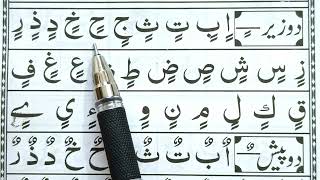 دو زیر ـٍ اٍ بٍ تٍ ثٍ جٍ حٍ خٍ دٍ ذٍ رٍ
زٍ سٍ شٍ صٍ ضٍ طٍ عٍ غٍ فٍ
قٍ كٍ لٍ مٍ نٍ وٍ ءٍ يٍ ےٍ
دو پیش ـٌ اٌ بٌ تٌ ثٌ حٌ خٌ دٌ ذٌ رٌ